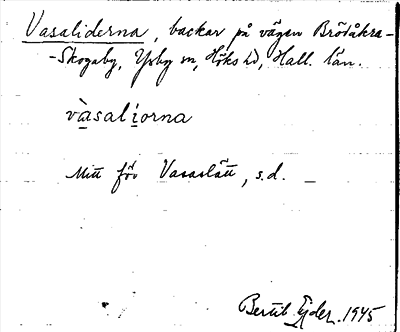 Vasaliderna, backar på vägen Brödåkra-
-Skogaby, Ysby sn, Höks hd, Hall. län.
vàsaliorna
Mitt för Vasaslätt, s.d. —
Bertil Ejder. 1945